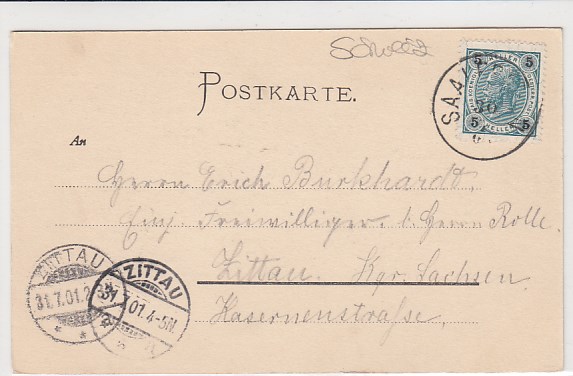 POSTKARTE.
5 HELLER 5
5 HELLER 5
SAAL
An
Herrn Erich Burkhardt,
Einj. Freiwilliger b. Herrn Rolle.
Zittau. Kgr. Sachsen.
Kasernenstraße.
ZITTAU
31.7.01.
ZITTAU
31.7.01.4-5N.